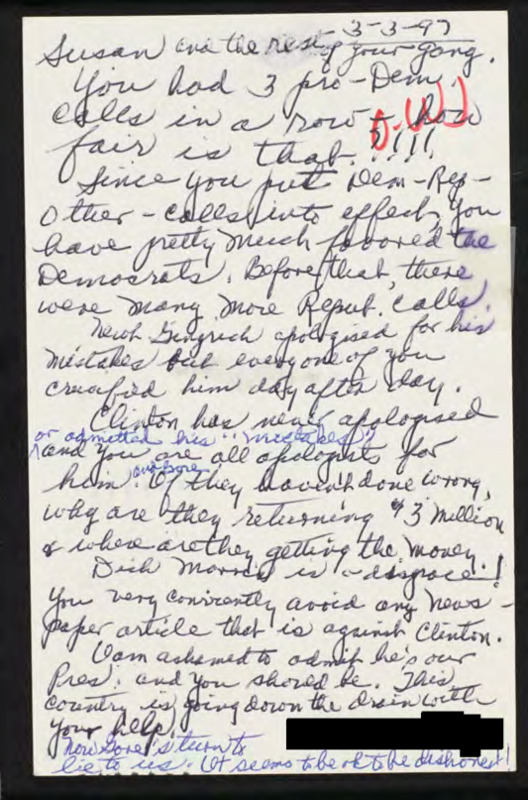 - 3-3-97
Susan and the rest of your gang.
You had 3 pro-Dem.
calls in a row - how
fair is that. !!!!
Since you put Dem-Rep-
Other - calls into effect, you
have pretty much favored the
Democrats. Before that, there
were many more Repub. calls.
Newt Gingrich apologised for his
mistakes but everyone of you
crucified him day after day.
Clinton has never apologised
or admitted his "mistakes"
and you are all apologists for
him. If they haven't done wrong,
and Gore
why are they returning $3 million
& where are they getting the money.
Dick Morris is a disgrace!
You very conviently avoid any news-
paper article that is against Clinton.
I am ashamed to admit he's our
Pres. and you should be. This
country is going down the drain with
your help.
Now Gore's turn to
lie to us. It seems to be ok to be dishonest!